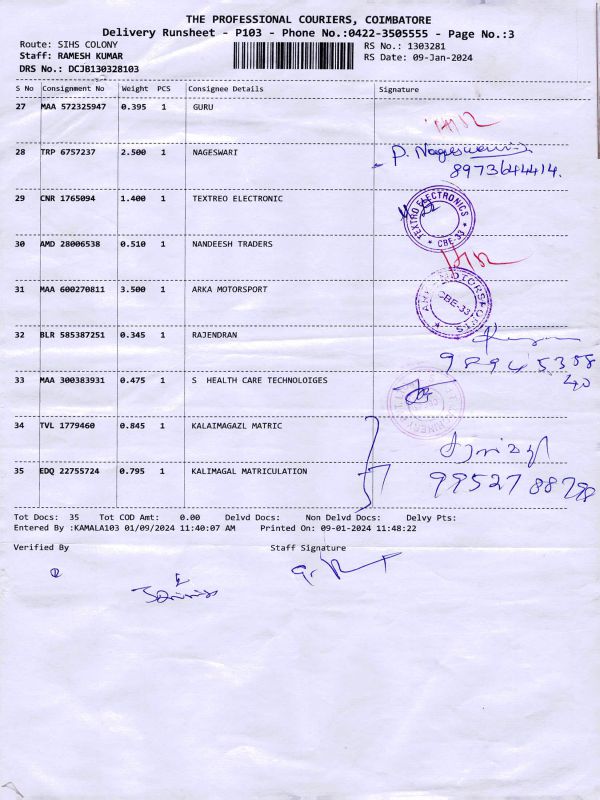 THE PROFESSIONAL COURIERS, COIMBATORE
Delivery Runsheet - P103 - Phone No.:0422-3505555 - Page No.:3
Route: SIHS COLONY
RS No.: 1303281
Staff: RAMESH KUMAR
RS Date: 09-Jan-2024
DRS No.: DCJB130328103
S No Consignment No Weight PCS Consignee Details Signature
27 MAA 572325947 0.395 1 GURU
28 TRP 6757237 2.500 1 NAGESWARI P. Nageswari
8973644414.
29 CNR 1765094 1.400 1 TEXTREO ELECTRONIC
TEXTRO ELECTRONICS
* CBE-33 *
30 AMD 28006538 0.510 1 NANDEESH TRADERS
31 MAA 600270811 3.500 1 ARKA MOTORSPORT
CBE-33
32 BLR 585387251 0.345 1 RAJENDRAN
33 MAA 300383931 0.475 1 S HEALTH CARE TECHNOLOIGES
34 TVL 1779460 0.845 1 KALAIMAGAZL MATRIC
35 EDQ 22755724 0.795 1 KALIMAGAL MATRICULATION
Tot Docs: 35 Tot COD Amt: 0.00 Delvd Docs: Non Delvd Docs: Delvy Pts:
Entered By :KAMALA103 01/09/2024 11:40:07 AM Printed On: 09-01-2024 11:48:22
Verified By Staff Signature